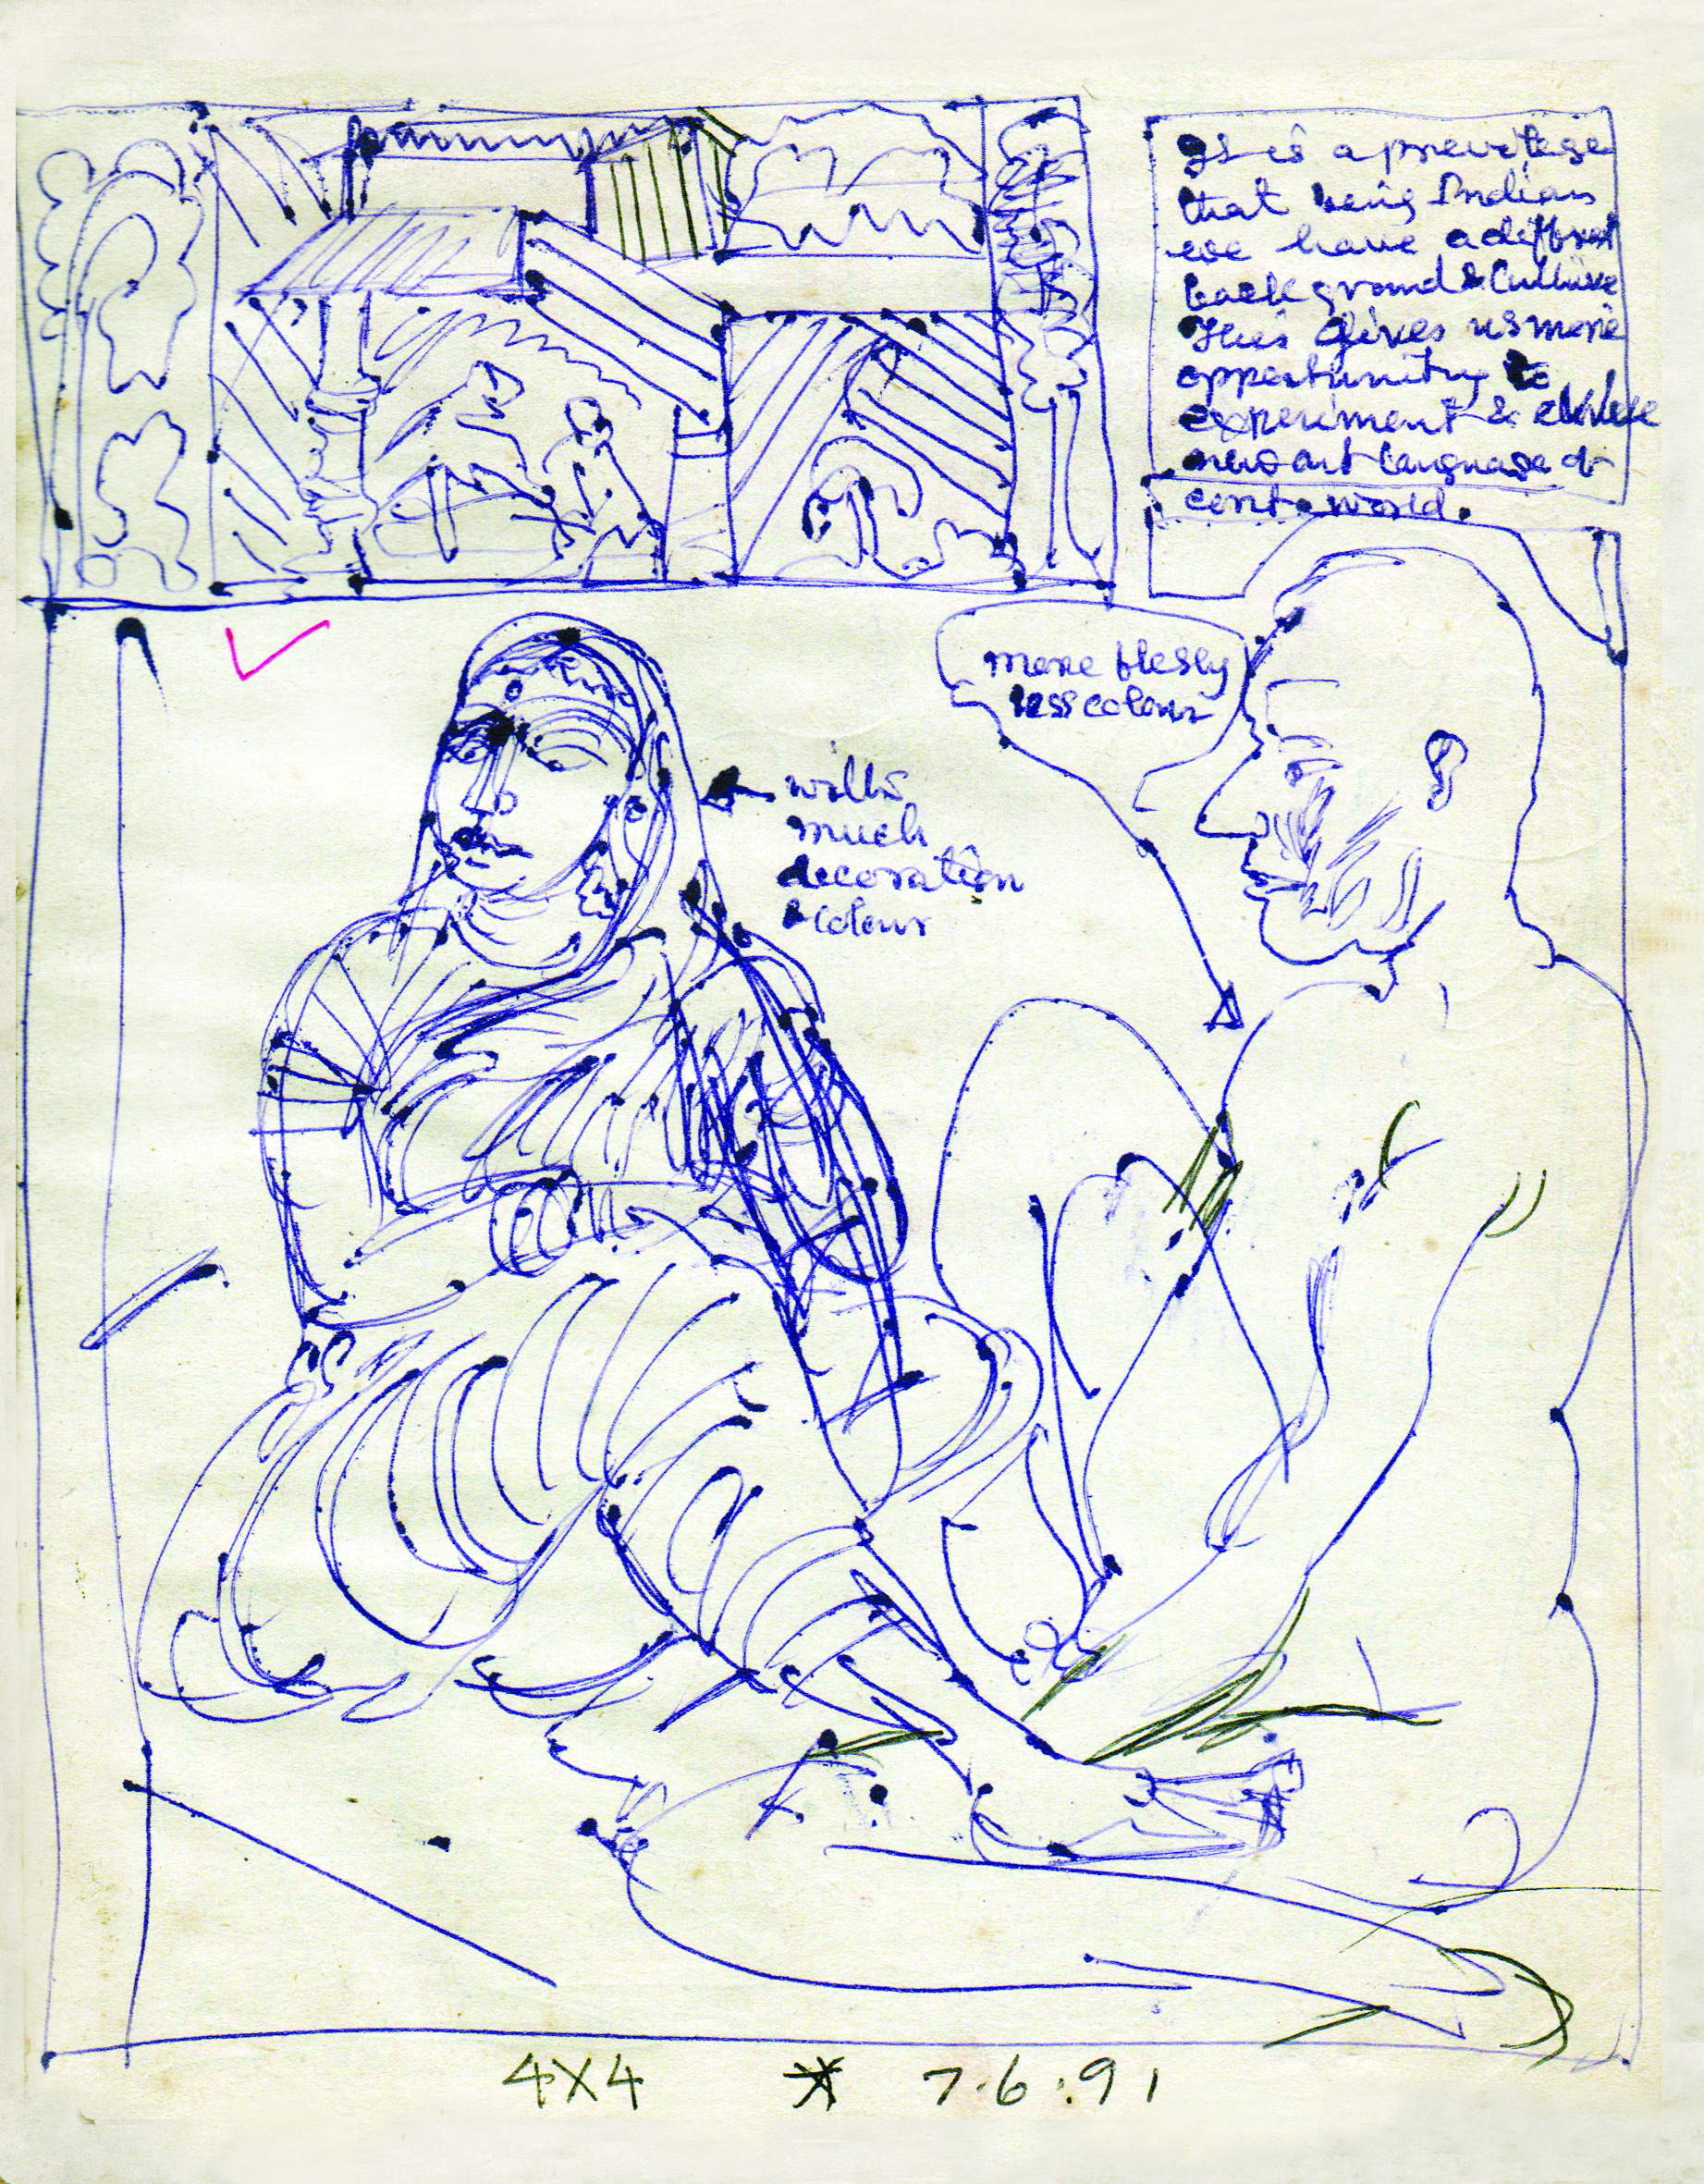 It is a previlege
that being Indian
we have a diffrent
background & Culture
This gives us more
opportunity to
experiment &
new art language of
cent. world.
more fleshy
less colour
with
much
decoration
& colour
4X4 * 7.6.91